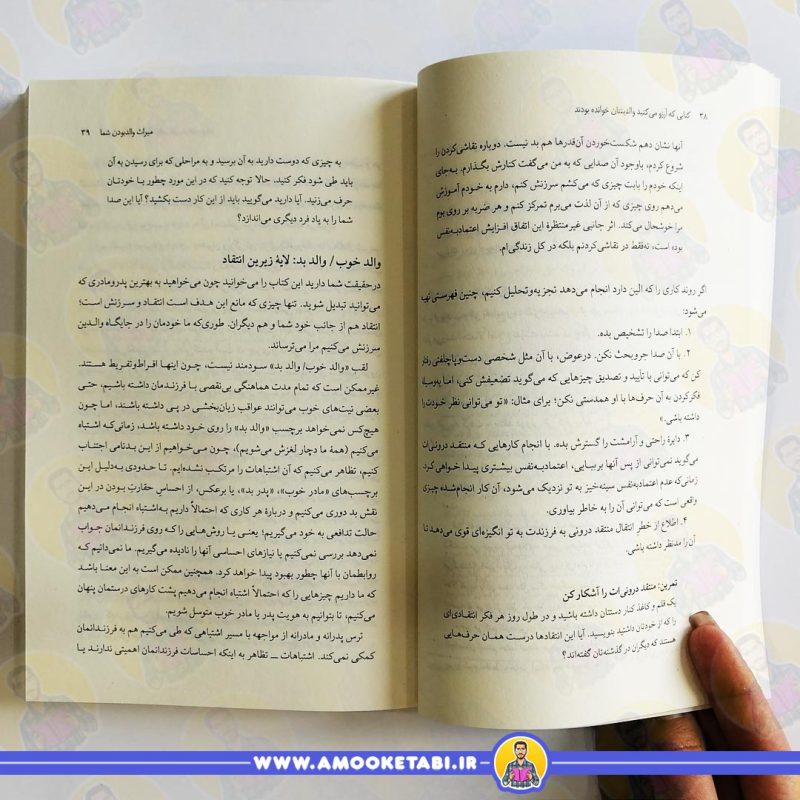 ۳۸ کتابی که آرزو می‌کنید والدینتان خوانده بودند
آنها نشان دهم شکست‌خوردن آن‌قدرها هم بد نیست. دوباره نقاشی‌کردن را
شروع کردم، باوجود آن صدایی که به من می‌گفت کنارش بگذارم. به‌جای
اینکه خودم را بابت چیزی که می‌کشم سرزنش کنم، دارم به خودم آموزش
می‌دهم روی چیزی که از آن لذت می‌برم تمرکز کنم و هر ضربه بر روی بوم
مرا خوشحال می‌کند. اثر جانبی غیرمنتظرهٔ این اتفاق افزایش اعتمادبه‌نفس
بوده است، نه‌فقط در نقاشی‌کردنم بلکه در کل زندگی‌ام.
اگر روند کاری را که الین دارد انجام می‌دهد تجزیه‌وتحلیل کنیم، چنین فهرستی تهیه
می‌شود:
۱. ابتدا صدا را تشخیص بده.
۲. با آن صدا جروبحث نکن. درعوض، با آن مثل شخصی دست‌وپاچلفتی رفتار
کن که می‌توانی با تأیید و تصدیق چیزهایی که می‌گوید تضعیفش کنی، اما به‌وسیلهٔ
فکرکردن به آن حرف‌ها با او همدستی نکن؛ برای مثال: «تو می‌توانی نظر خودت را
داشته باشی.»
۳. دایرهٔ راحتی و آرامشت را گسترش بده. با انجام کارهایی که منتقد درونی‌ات
می‌گوید نمی‌توانی از پس آنها بربیایی، اعتمادبه‌نفس بیشتری پیدا خواهی کرد.
زمانی‌که عدم اعتمادبه‌نفس سینه‌خیز به تو نزدیک می‌شود، آن کار انجام‌شده چیزی
واقعی است که می‌توانی آن را به خاطر بیاوری.
۴. اطلاع از خطر انتقال منتقد درونی به فرزندت به تو انگیزه‌ای قوی می‌دهد تا
آن را مدنظر داشته باشی.
تمرین: منتقد درونی‌ات را آشکار کن
یک قلم و کاغذ کنار دستتان داشته باشید و در طول روز هر فکر انتقادی‌ای
را که از خودتان داشتید بنویسید. آیا این انتقادها درست همان حرف‌هایی
هستند که دیگران در گذشته‌تان گفته‌اند؟
میراث والدبودن شما ۳۹
به چیزی که دوست دارید به آن برسید و به مراحلی که برای رسیدن به آن
باید طی شود فکر کنید. حالا توجه کنید که در این مورد چطور با خودتان
حرف می‌زنید. آیا دارید می‌گویید باید از این کار دست بکشید؟ آیا این صدا
شما را به یاد فرد دیگری می‌اندازد؟
والد خوب/ والد بد: لایهٔ زیرین انتقاد
درحقیقت شما دارید این کتاب را می‌خوانید چون می‌خواهید به بهترین پدرومادری که
می‌توانید تبدیل شوید. تنها چیزی که مانع این هدف است انتقاد و سرزنش است؛
انتقاد هم از جانب خود شما و هم دیگران. طوری‌که ما خودمان را در جایگاه والدین
سرزنش می‌کنیم مرا می‌ترساند.
لقب «والد خوب/ والد بد» سودمند نیست، چون اینها افراط‌وتفریط هستند.
غیرممکن است که تمام مدت هماهنگی بی‌نقصی با فرزندمان داشته باشیم، حتی
بعضی نیت‌های خوب می‌توانند عواقب زیان‌بخشی در پی داشته باشند، اما چون
هیچ‌کس نمی‌خواهد برچسب «والد بد» را روی خود داشته باشد، زمانی‌که اشتباه
می‌کنیم (همهٔ ما دچار لغزش می‌شویم)، چون می‌خواهیم از این بدنامی اجتناب
کنیم، تظاهر می‌کنیم که آن اشتباهات را مرتکب نشده‌ایم. تا حدودی به‌دلیل این
برچسب‌های «مادر خوب»، «پدر بد»، یا برعکس، از احساسِ حقارتِ بودن در این
نقش بد دوری می‌کنیم و دربارهٔ هر کاری که احتمالاً داریم به‌اشتباه انجام می‌دهیم
حالت تدافعی به خود می‌گیریم؛ یعنی یا روش‌هایی را که روی فرزندانمان جواب
نمی‌دهد بررسی نمی‌کنیم یا نیازهای احساسی آنها را نادیده می‌گیریم. ما نمی‌دانیم که
روابطمان با آنها چطور بهبود پیدا خواهد کرد. همچنین ممکن است به این معنا باشد
که ما داریم چیزهایی را که احتمالاً اشتباه انجام می‌دهیم پشت کارهای درستمان پنهان
می‌کنیم، تا بتوانیم به هویت پدر یا مادر خوب متوسل شویم.
ترس پدرانه و مادرانه از مواجهه با مسیر اشتباهی که طی می‌کنیم هم به فرزندانمان
کمکی نمی‌کند. اشتباهات ــ تظاهر به اینکه احساسات فرزندانمان اهمیتی ندارند یا
WWW.AMOOKETABI.IR